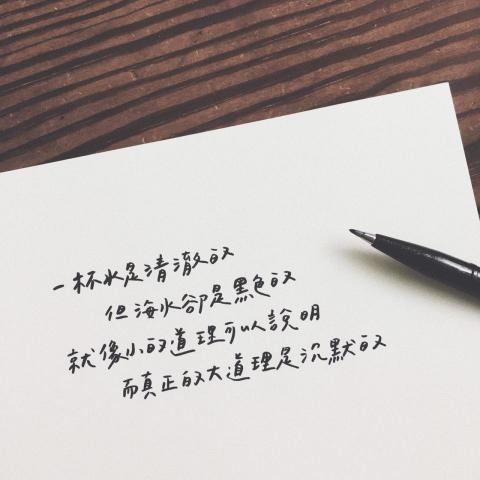 一杯水是清澈的
但海水卻是黑色的
就像小的道理可以說明
而真正的大道理是沉默的